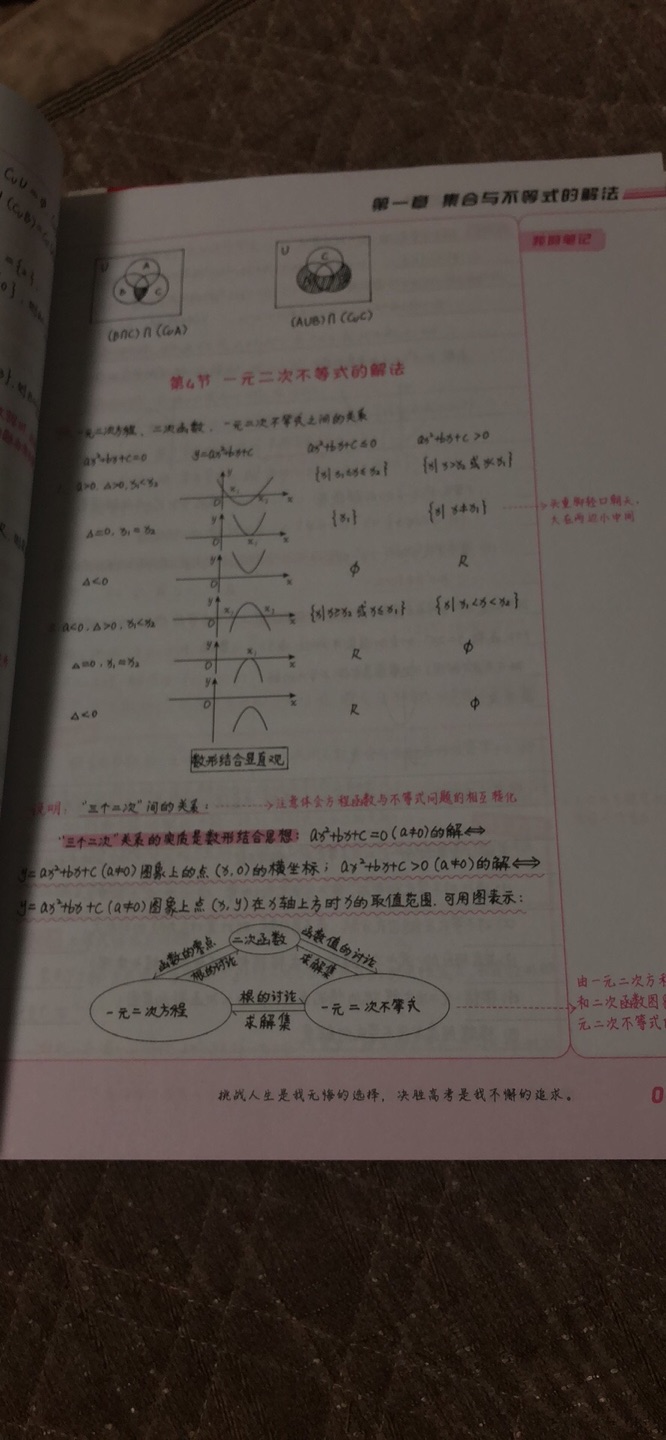 第一章 集合与不等式的解法
我的笔记
U A B C
U C
(B∩C)∩(CuA)
(A∪B)∩(CuC)
第4节 一元二次不等式的解法
一元二次方程、二次函数、一元二次不等式之间的关系
ax²+bx+c=0 y=ax²+bx+c ax²+bx+c≤0 ax²+bx+c>0
a>0, Δ>0, x₁<x₂ {x| x₁≤x≤x₂} {x| x>x₂ 或 x<x₁}
Δ=0, x₁=x₂ {x₁} {x| x≠x₁}
Δ<0 Φ R
a<0, Δ>0, x₁<x₂ {x|x≥x₂ 或 x≤x₁} {x| x₁<x<x₂}
Δ=0, x₁=x₂ R Φ
Δ<0 R Φ
头重脚轻口朝
大在两边小中间
数形结合显直观
说明: "三个二次"间的关系: 注意体会方程函数与不等式问题的相互转化
"三个二次"关系的实质是数形结合思想: ax²+bx+c=0(a≠0)的解⇔
y=ax²+bx+c(a≠0)图象上的点(x,0)的横坐标; ax²+bx+c>0(a≠0)的解⇔
y=ax²+bx+c(a≠0)图象上点(x,y)在x轴上方时x的取值范围. 可用图表示:
二次函数
函数的零点
根的讨论
函数值的讨论
求解集
一元二次方程
根的讨论
求解集
一元二次不等式
由一元二次方程
和二次函数图
元二次不等式
挑战人生是我无悔的选择, 决胜高考是我不懈的追求。
0